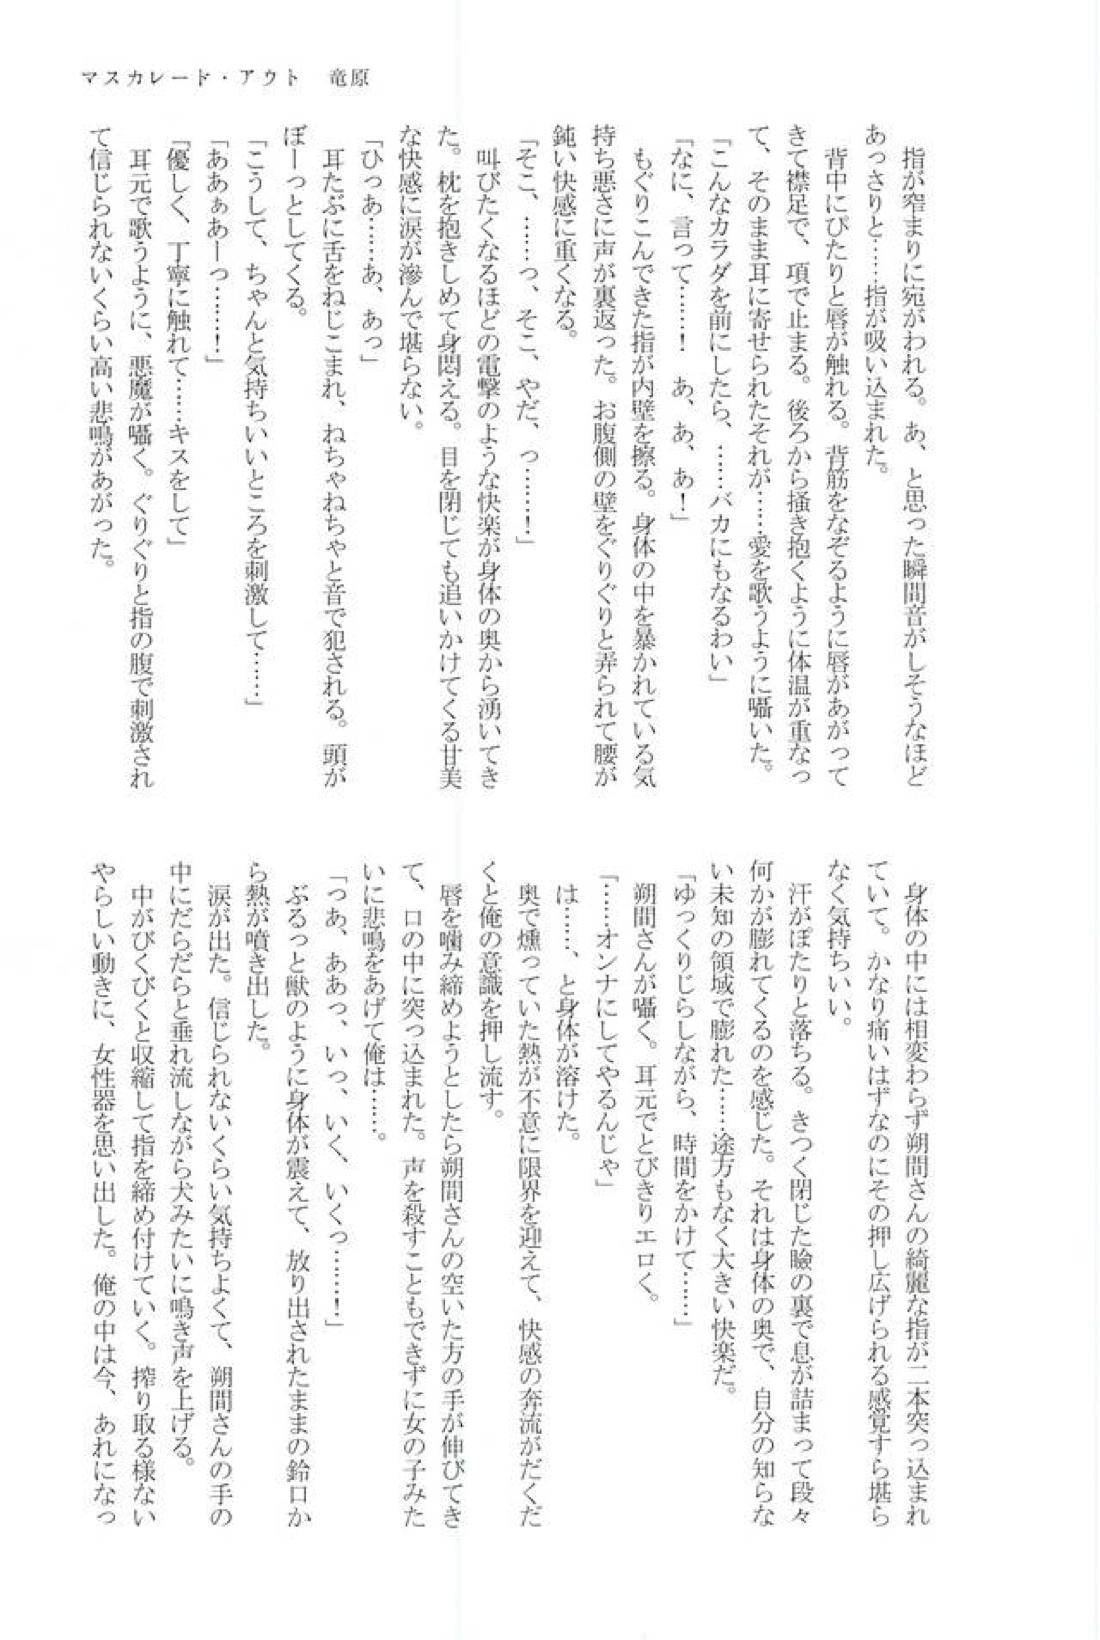 マスカレード・アウト　竜原
　指が窄まりに宛がわれる。あ、と思った瞬間音がしそうなほど
あっさりと……指が吸い込まれた。
　背中にぴたりと唇が触れる。背筋をなぞるように唇があがって
きて襟足で、項で止まる。後ろから掻き抱くように体温が重なっ
て、そのまま耳に寄せられたそれが……愛を歌うように囁いた。
「こんなカラダを前にしたら、……バカにもなるわい」
「なに、言って……！　あ、あ、あ！」
　もぐりこんできた指が内壁を擦る。身体の中を暴かれている気
持ち悪さに声が裏返った。お腹側の壁をぐりぐりと弄られて腰が
鈍い快感に重くなる。
「そこ、……っ、そこ、やだ、っ……！」
　叫びたくなるほどの電撃のような快楽が身体の奥から湧いてき
た。枕を抱きしめて身悶える。目を閉じても追いかけてくる甘美
な快感に涙が滲んで堪らない。
「ひっあ……あ、あっ」
　耳たぶに舌をねじこまれ、ねちゃねちゃと音で犯される。頭が
ぼーっとしてくる。
「こうして、ちゃんと気持ちいいところを刺激して……」
「ああぁあーっ……！」
「優しく、丁寧に触れて……キスをして」
　耳元で歌うように、悪魔が囁く。ぐりぐりと指の腹で刺激され
て信じられないくらい高い悲鳴があがった。
　身体の中には相変わらず朔間さんの綺麗な指が二本突っ込まれ
ていて。かなり痛いはずなのにその押し広げられる感覚すら堪ら
なく気持ちいい。
　汗がぽたりと落ちる。きつく閉じた瞼の裏で息が詰まって段々
何かが膨れてくるのを感じた。それは身体の奥で、自分の知らな
い未知の領域で膨れた……途方もなく大きい快楽だ。
「ゆっくりじらしながら、時間をかけて……」
　朔間さんが囁く。耳元でとびきりエロく。
「……オンナにしてやるんじゃ」
　は……、と身体が溶けた。
　奥で燻っていた熱が不意に限界を迎えて、快感の奔流がだくだ
くと俺の意識を押し流す。
　唇を噛み締めようとしたら朔間さんの空いた方の手が伸びてき
て、口の中に突っ込まれた。声を殺すこともできずに女の子みた
いに悲鳴をあげて俺は……。
「っあ、ああっ、いっ、いく、いくっ……！」
　ぶるっと獣のように身体が震えて、放り出されたままの鈴口か
ら熱が噴き出した。
　涙が出た。信じられないくらい気持ちよくて、朔間さんの手の
中にだらだらと垂れ流しながら犬みたいに鳴き声を上げる。
　中がびくびくと収縮して指を締め付けていく。搾り取る様ない
やらしい動きに、女性器を思い出した。俺の中は今、あれになっ